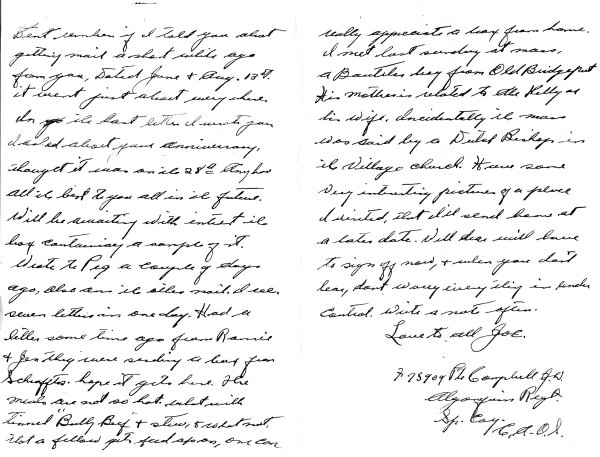 Dont remember if I told you about
getting mail a short while ago
from you, Dated June & Aug. 13th.
it went just about everywhere.
In the last letter I wrote you
I asked about your anniversary,
thought it was on the 28th Anyhow
all the best to you all in the future.
Will be awaiting with interest the
box containing a sample of it.
Wrote to Peg a couple of days
ago, also ans the other mail. I rec.
seven letters in one day. Had a
letter some time ago from Ronnie
& Jen they were sending a box from
Schraffts. hope it gets here. The
meals are not so hot. what with
tinned "Bully Beef" & stew, & what not.
that a fellow gets fed up on, one can
really appreciate a box from home.
I met last sunday at mass,
a boy from Old Bridgeport
His mother is related to the Kelly or
his wife. Incidentally the mass
was said by a Dutch Bishop in
the Village church. Have some
very interesting pictures of a place
I visited, that I'll send home at
a later date. Well dear will have
to sign off now, & when you don't
hear, dont worry everything in under
control. Write soon & often.
Love to all Joe.
F 75904 Pte Campbell J.D.
Algonquin Regt.
Sp. Coy.
C.A.O.S.